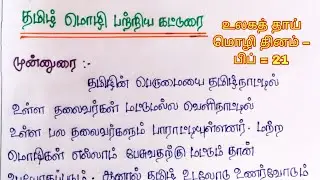 தமிழ் மொழி பற்றிய கட்டுரை
உலகத் தாய்
மொழி தினம் –
பிப் = 21
முன்னுரை :-
தமிழின் பெருமையை தமிழ்நாட்டில்
உள்ள தலைவர்கள் மட்டுமல்ல வெளிநாட்டில்
உள்ள பல தலைவர்களும் பாராட்டியுள்ளனர். மற்ற
மொழிகள் எல்லாம் பேசுவதற்கு மட்டும் தான்
ஆனால் தமிழ் உடலோடு உணர்வோடும்